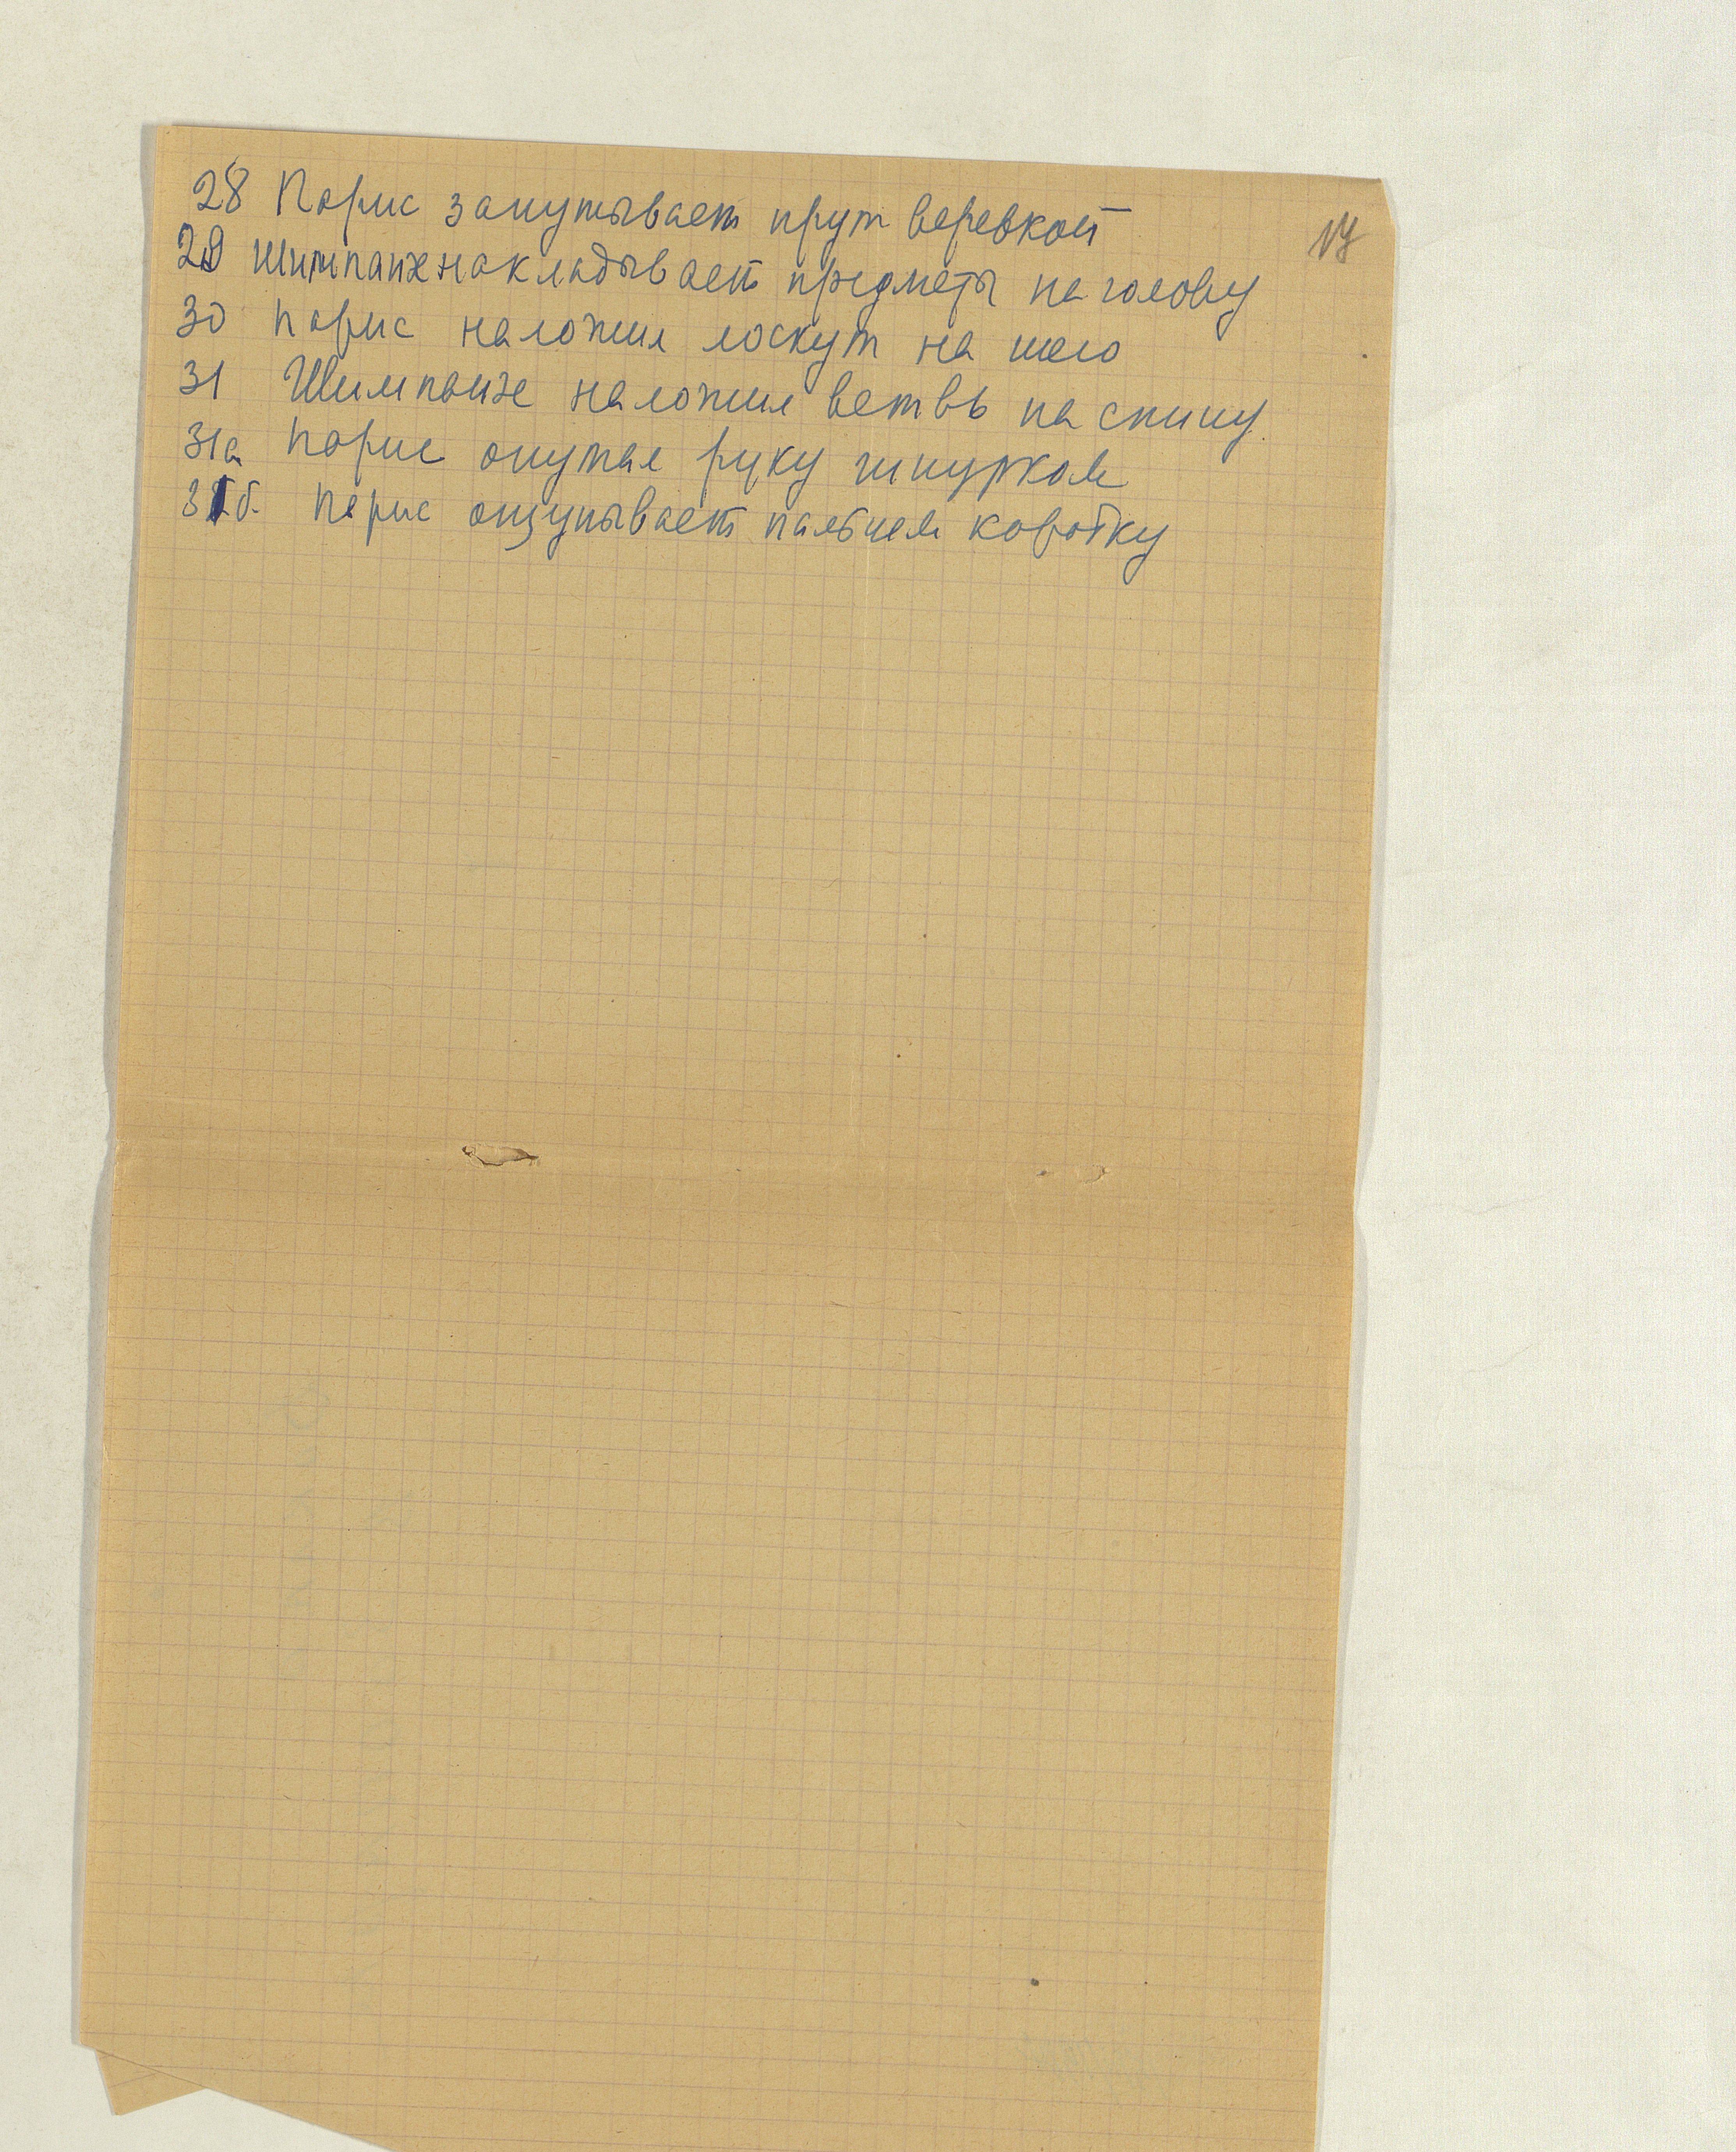 28 Парис запутывает прут веревкой
17
29 Шимпанзе накладывает предметы на голову
30 Парис наложил лоскут на шею
31 Шимпанзе наложил ветвь на спину.
31а Парис опутал руку шнурком
31б. Парис ощупывает пальцем коробку